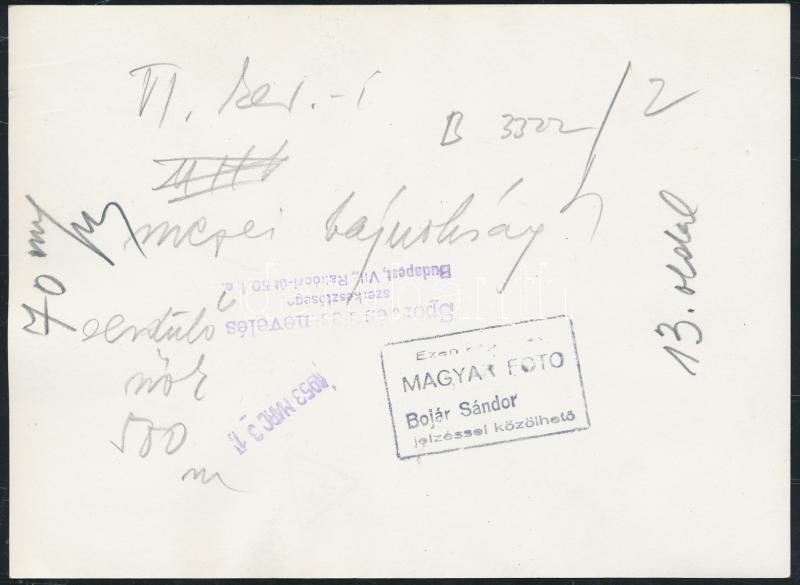 VI. ker.-i
B 3322/2
mezei bajnokság
serdülő
nők
500
m
70 m/m
13. oldal
Sport és Testnevelés
szerkesztősége
Budapest, VII., Rákóczi-út 50. I. e.
1953 MÁRC 3 1.
Ezen kép
MAGYAR FOTO
Bojár Sándor
jelzéssel közölhető